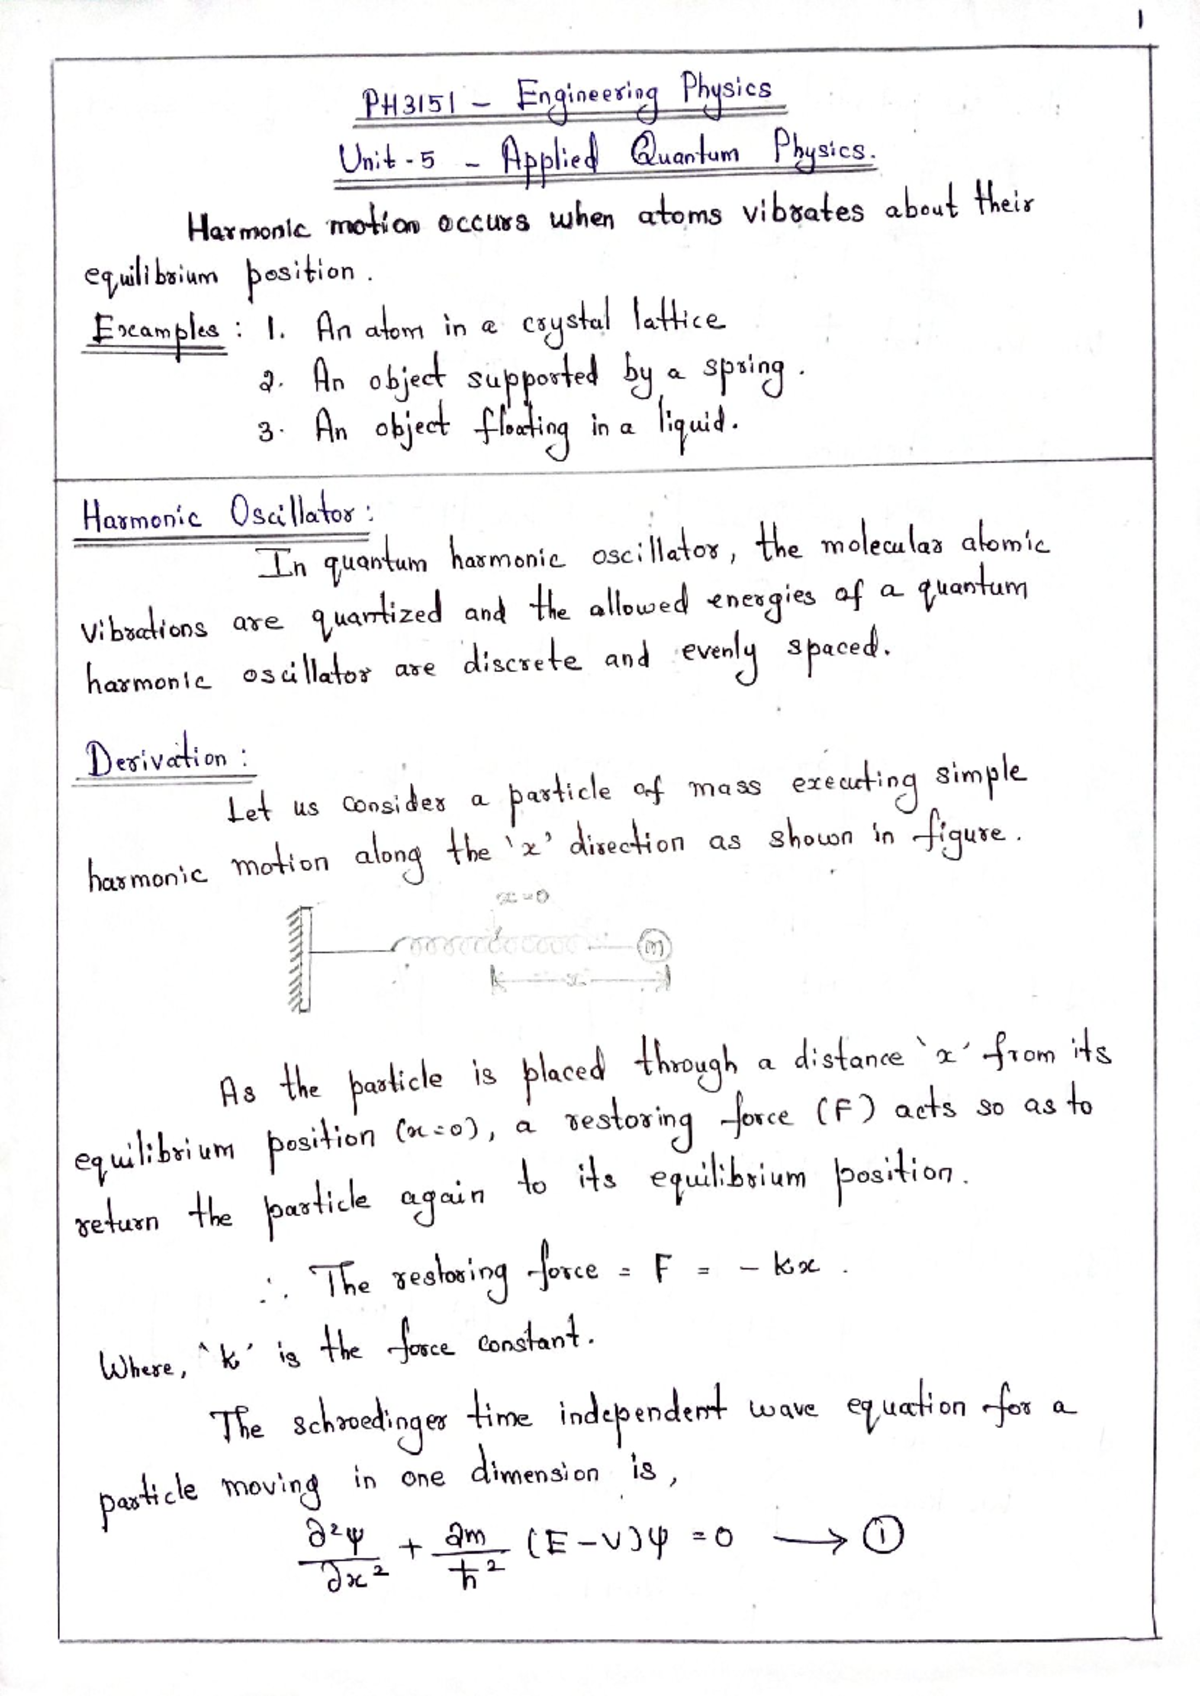 1
PH3151 - Engineering Physics
Unit-5 - Applied Quantum Physics.
Harmonic motion occurs when atoms vibrates about their
equilibrium position.
Examples : 1. An atom in a crystal lattice
2. An object supported by a spring.
3. An object floating in a liquid.
Harmonic Oscillator:
In quantum harmonic oscillator, the molecular atomic
vibrations are quantized and the allowed energies of a quantum
harmonic oscillator are discrete and evenly spaced.
Derivation :
Let us consider a particle of mass executing simple
harmonic motion along the 'x' direction as shown in figure.
x=0
m
x
As the particle is placed through a distance 'x' from its
equilibrium position (x=0), a restoring force (F) acts so as to
return the particle again to its equilibrium position.
∴ The restoring force = F = - kx.
Where, 'k' is the force constant.
The schroedinger time independent wave equation for a
particle moving in one dimension is,
∂²ψ/∂x² + 2m/ħ² (E-V)ψ = 0 → ①